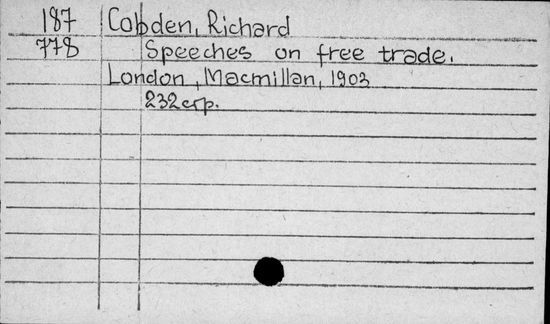 187 Cobden, Richard
778 Speeches on free trade.
London, Macmillan, 1903
232 стр.